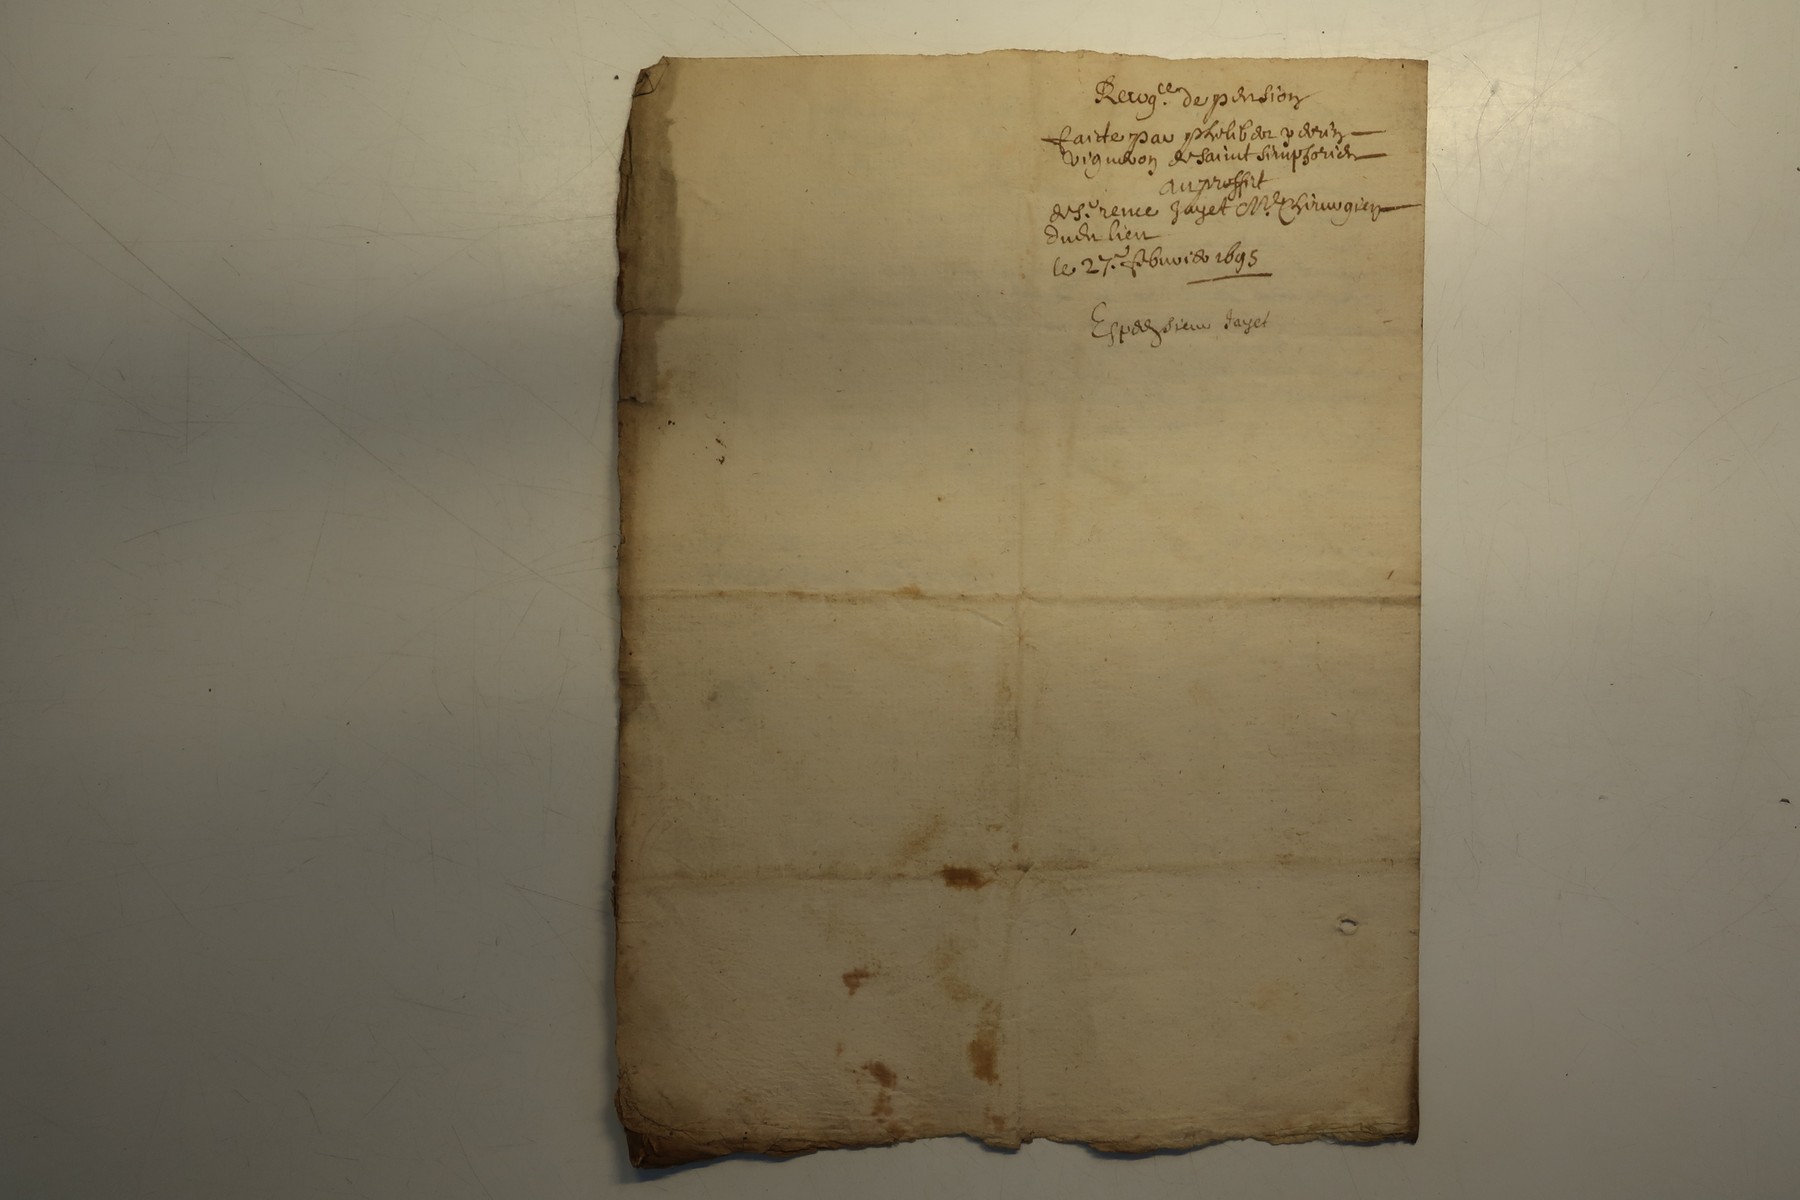 Recog.ce de pension
faicte par philiber perrin
vigneron de saint simphorien
au proffit
de s.r rene Jayet M.e Chirurgien
dudit lieu
le 27.e febvrier 1695
Exped. sieur Jayet